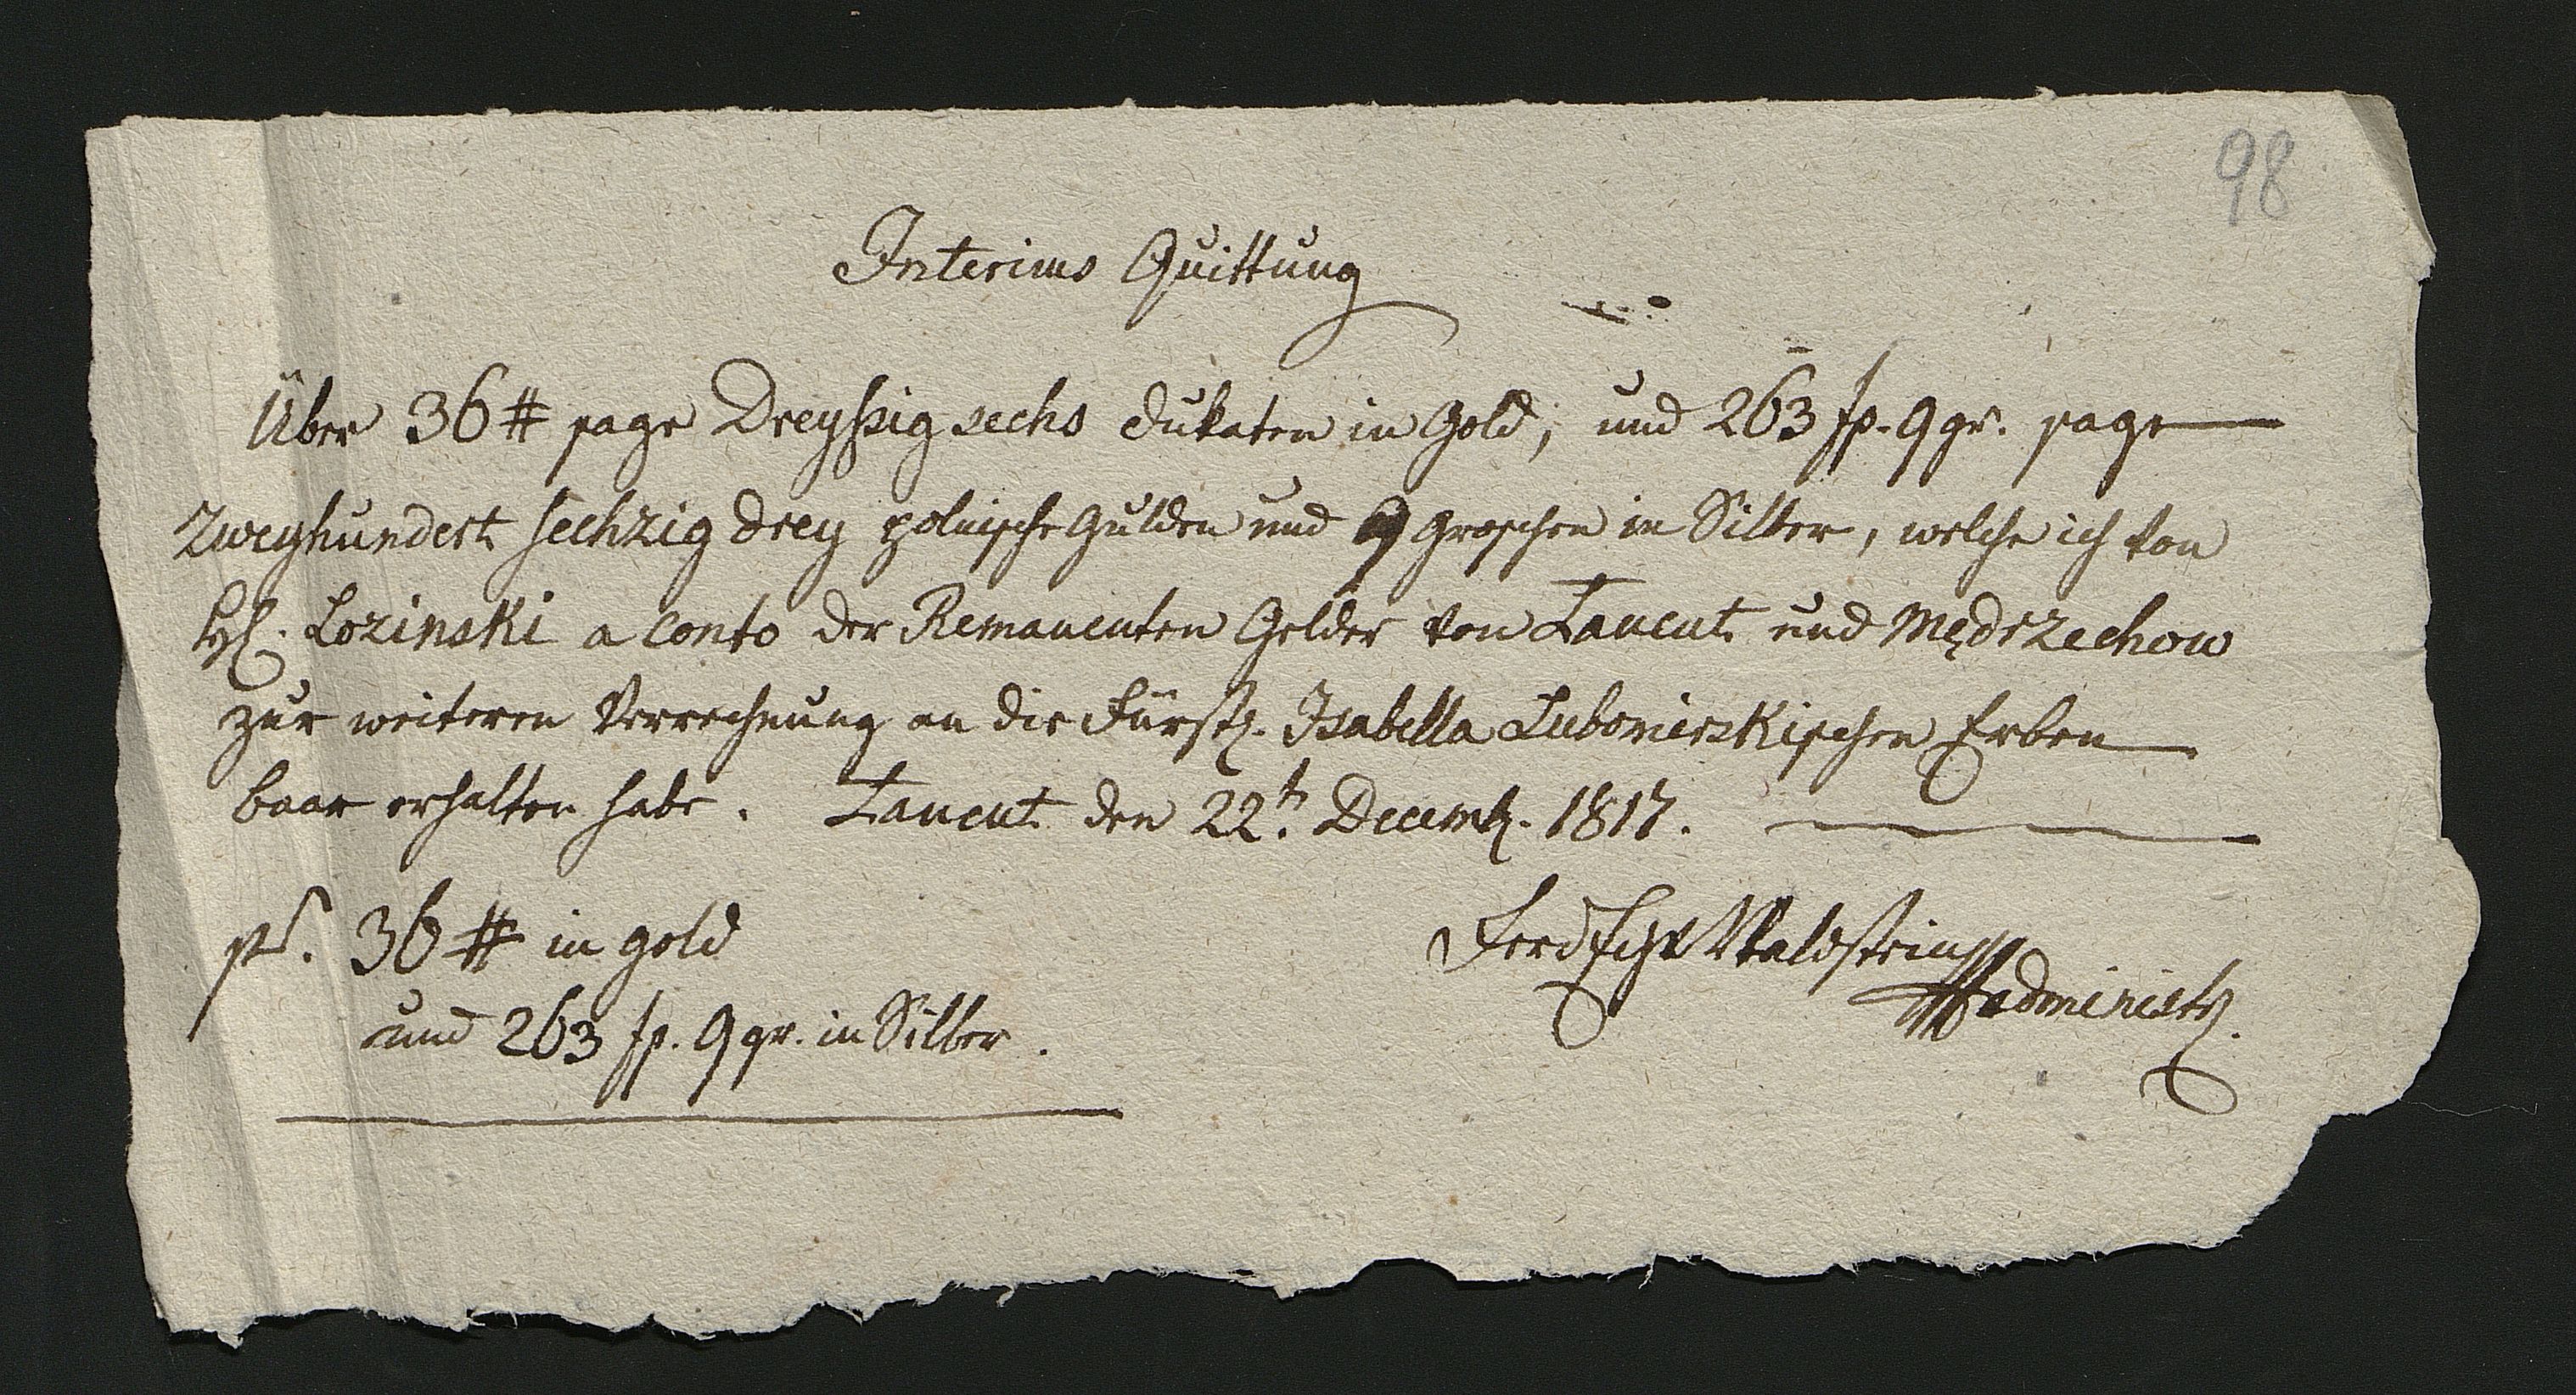 98
Interims Quittung
Über 36 # sage Dreyßig sechs Dukaten in Gold, und 263 fp. 9 gr. sage
Zweyhundert sechzig drey polnische Gulden und 9 Groschen in Silber, welche ich von
H. Lozinski a Conto der Remanenten Gelder von Łancut und Mędrzechow
zur weiteren Verrechnung an die Fürstl. Isabella Lubomirskischen Erben
baar erhalten habe. Łancut den 22t. Decemb. 1817.
pr. 36 # in Gold
und 263 fp. 9 gr. in Silber.
Ferd Waldstein
Administr.